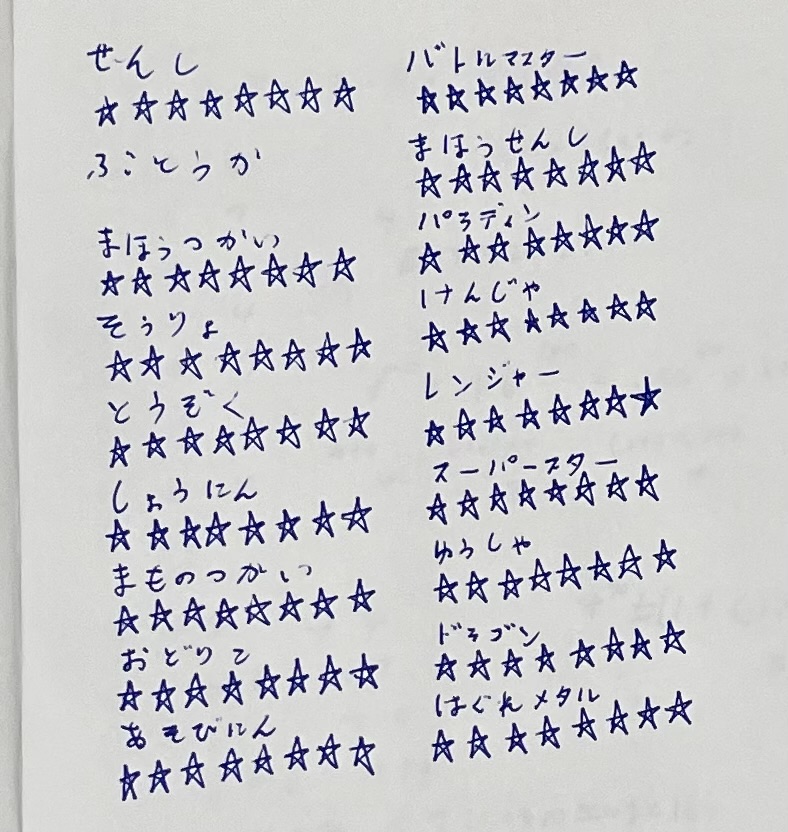 せんし
☆☆☆☆☆☆☆☆
ぶとうか
まほうつかい
☆☆☆☆☆☆☆☆
そうりょ
☆☆☆☆☆☆☆☆
とうぞく
☆☆☆☆☆☆☆☆
しょうにん
☆☆☆☆☆☆☆☆
まものつかい
☆☆☆☆☆☆☆☆
おどりこ
☆☆☆☆☆☆☆☆
あそびにん
☆☆☆☆☆☆☆☆
バトルマスター
☆☆☆☆☆☆☆☆
まほうせんし
☆☆☆☆☆☆☆☆
パラディン
☆☆☆☆☆☆☆☆
けんじゃ
☆☆☆☆☆☆☆☆
レンジャー
☆☆☆☆☆☆☆☆
スーパースター
☆☆☆☆☆☆☆☆
ゆうしゃ
☆☆☆☆☆☆☆☆
ドラゴン
☆☆☆☆☆☆☆☆
はぐれメタル
☆☆☆☆☆☆☆☆